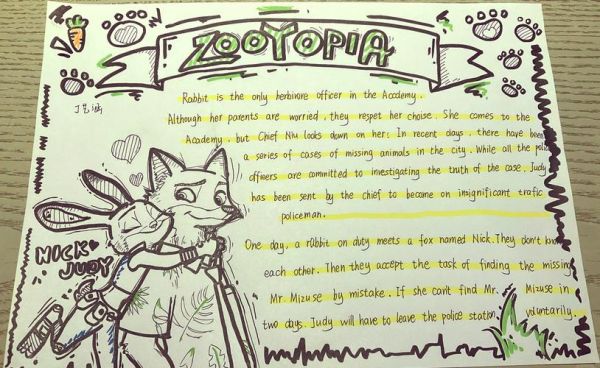 ZOOTOPIA
Rabbit is the only herbivore officer in the Academy.
Although her parents are worried, they respet her choise. She comes to the
Academy, but Chief Niu looks down on her. In recent days, there have been
a series of cases of missing animals in the city. While all the police
officers are committed to investigating the truth of the case, Judy
has been sent by the chief to become an insignificant trafic
policeman.
One day, a rabbit on duty meets a fox named Nick. They don't know
each other. Then they accept the task of finding the missing
Mr. Mizuse by mistake. If she can't find Mr. Mizuse in
two days. Judy will have to leave the police station voluntarily.
NICK
JUDY